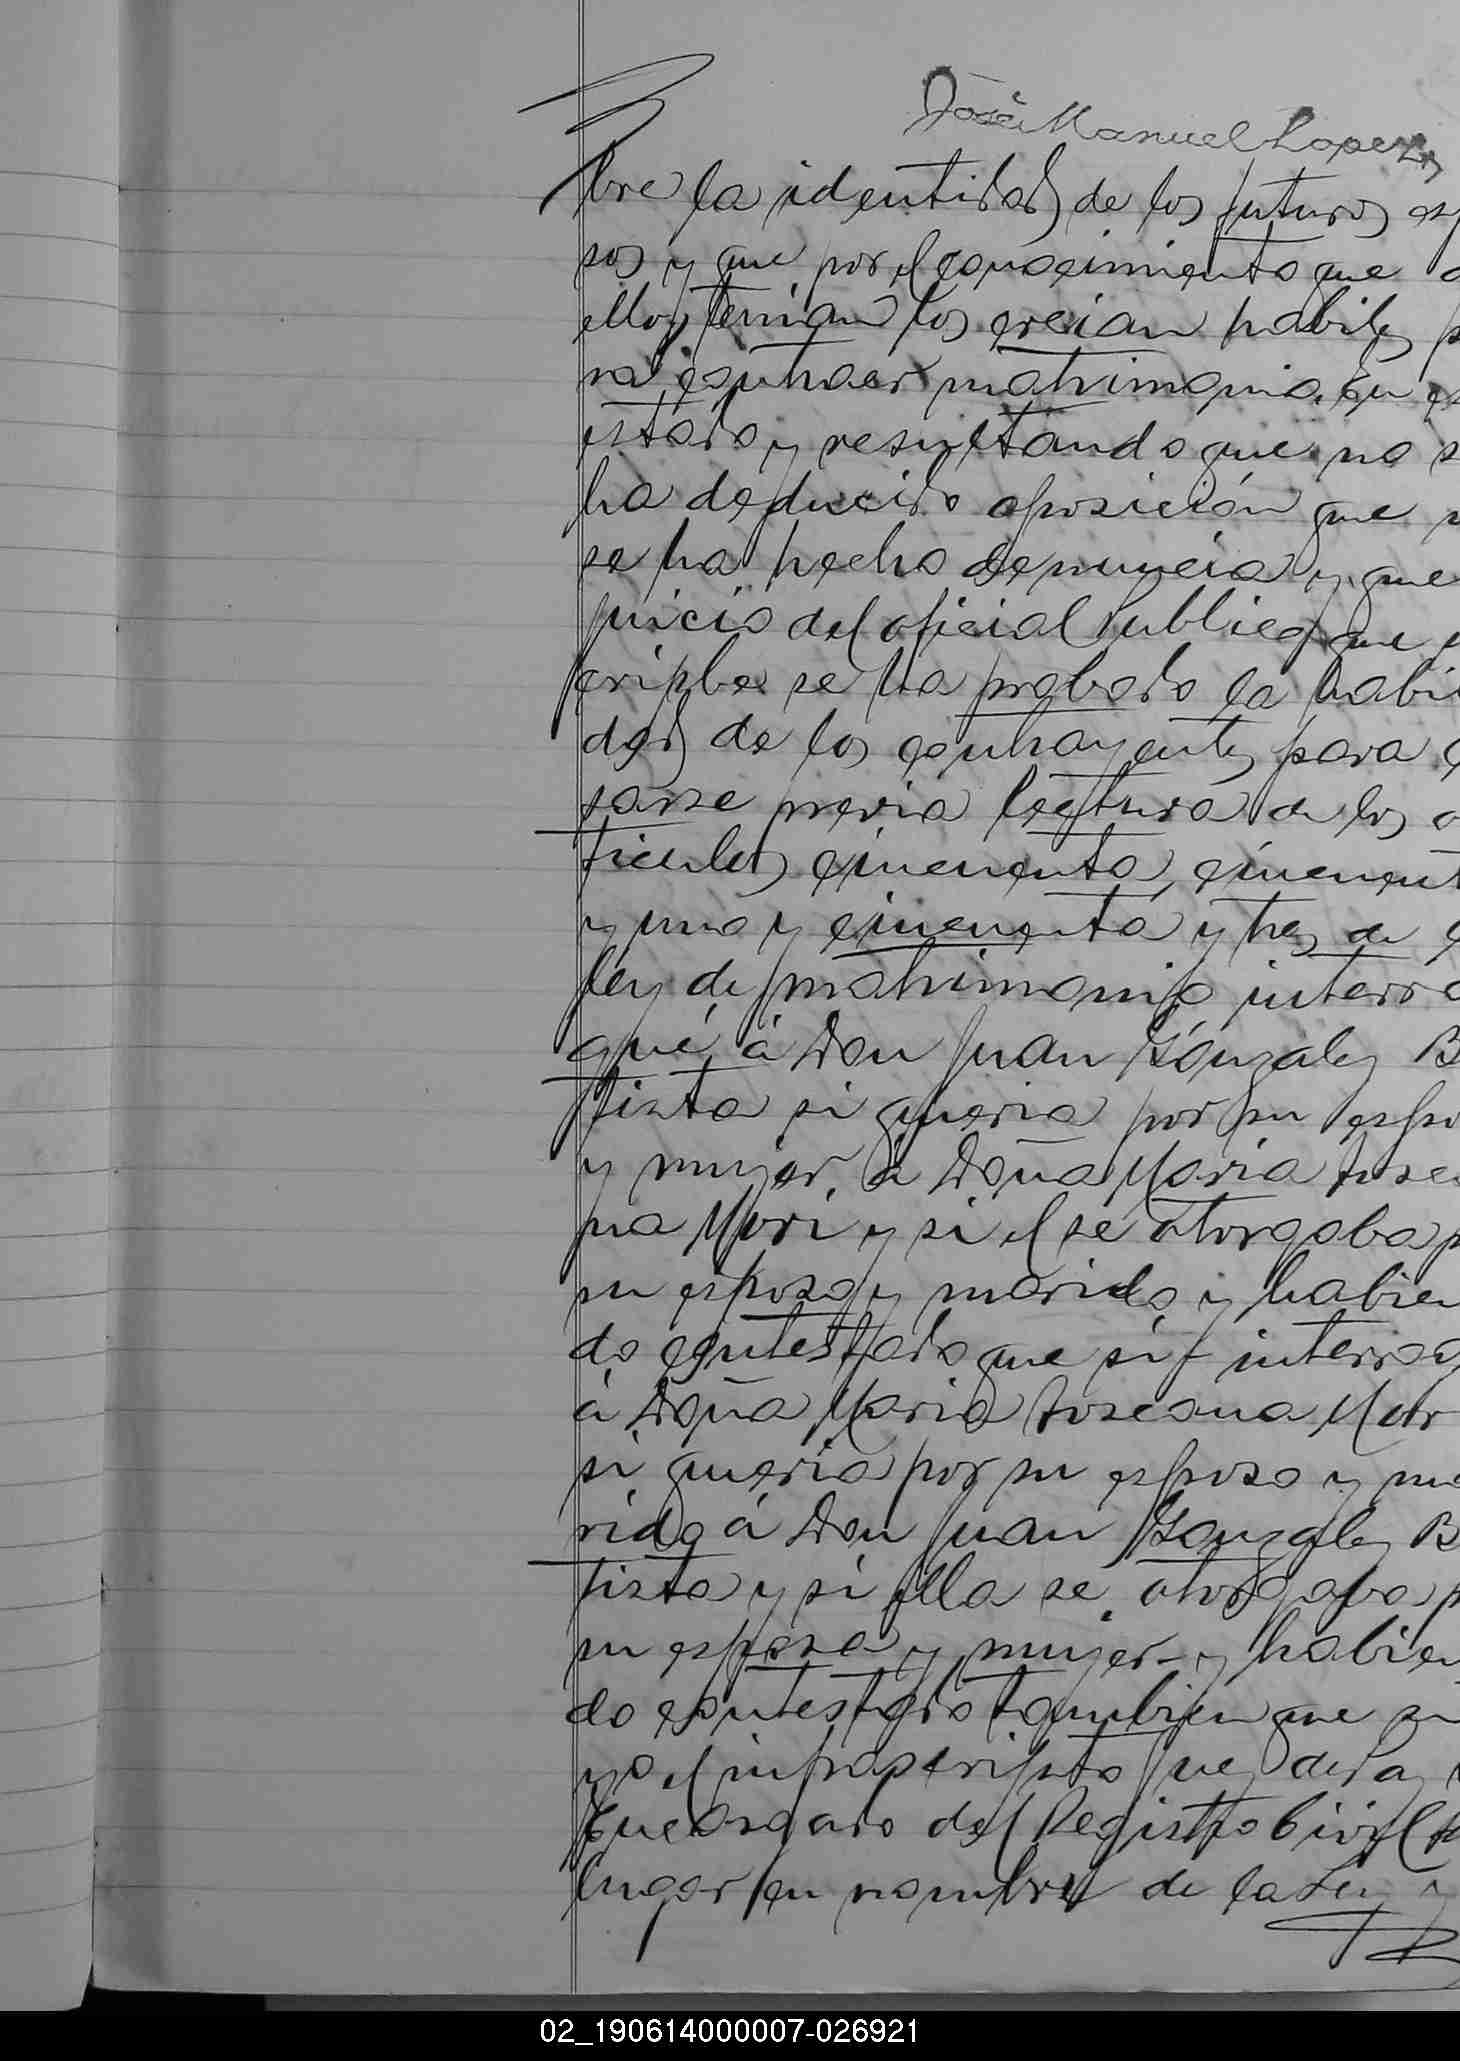 José Manuel Lopez
bre la identidad de los futuros esp
sos y que por el conocimiento que d
ellos tenian los creian habiles p
ra contraer matrimonio. En es
estado y resultando que no s
ha deducido oposición que n
se ha hecho denuncia y que
juicio del oficial Publico que
cribe se ha probado la habi
dad de los contrayentes para c
sarse previa lectura de los a
ticulos cincuenta, cincuent
y uno y cincuenta y tres de l
ley de matrimonio interro
gué á Don Juan Gónzalez B
tista si queria por su espo
y mujer á Doña Maria Tosca
na Mori y si el se otorgaba p
su esposo y marido y habien
do contestado que sí interrog
á Doña Maria Toscana Mor
si queria por su esposo y ma
rido á Don Juan Gonzalez B
tista y si ella se otorgaba p
su esposa y mujer y habien
do contestado tambien que si
yo el infrascripto Juez de Paz
Encargado del Registro Civil
lugar en nombre de la Ley y
02_190614000007-026921